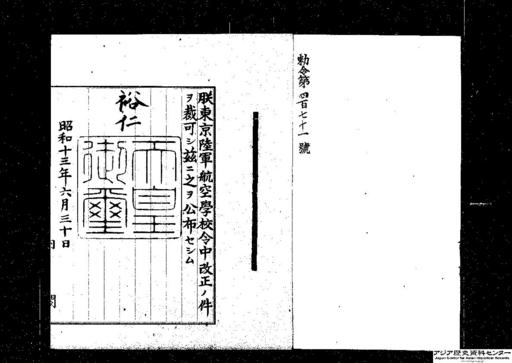 勅令第四百七十一號
朕東京陸軍航空學校令中改正ノ件
ヲ裁可シ茲ニ之ヲ公布セシム
裕仁
天皇
御璽
昭和十三年六月三十日
内閣
アジア歴史資料センター
Japan Center for Asian Historical Records